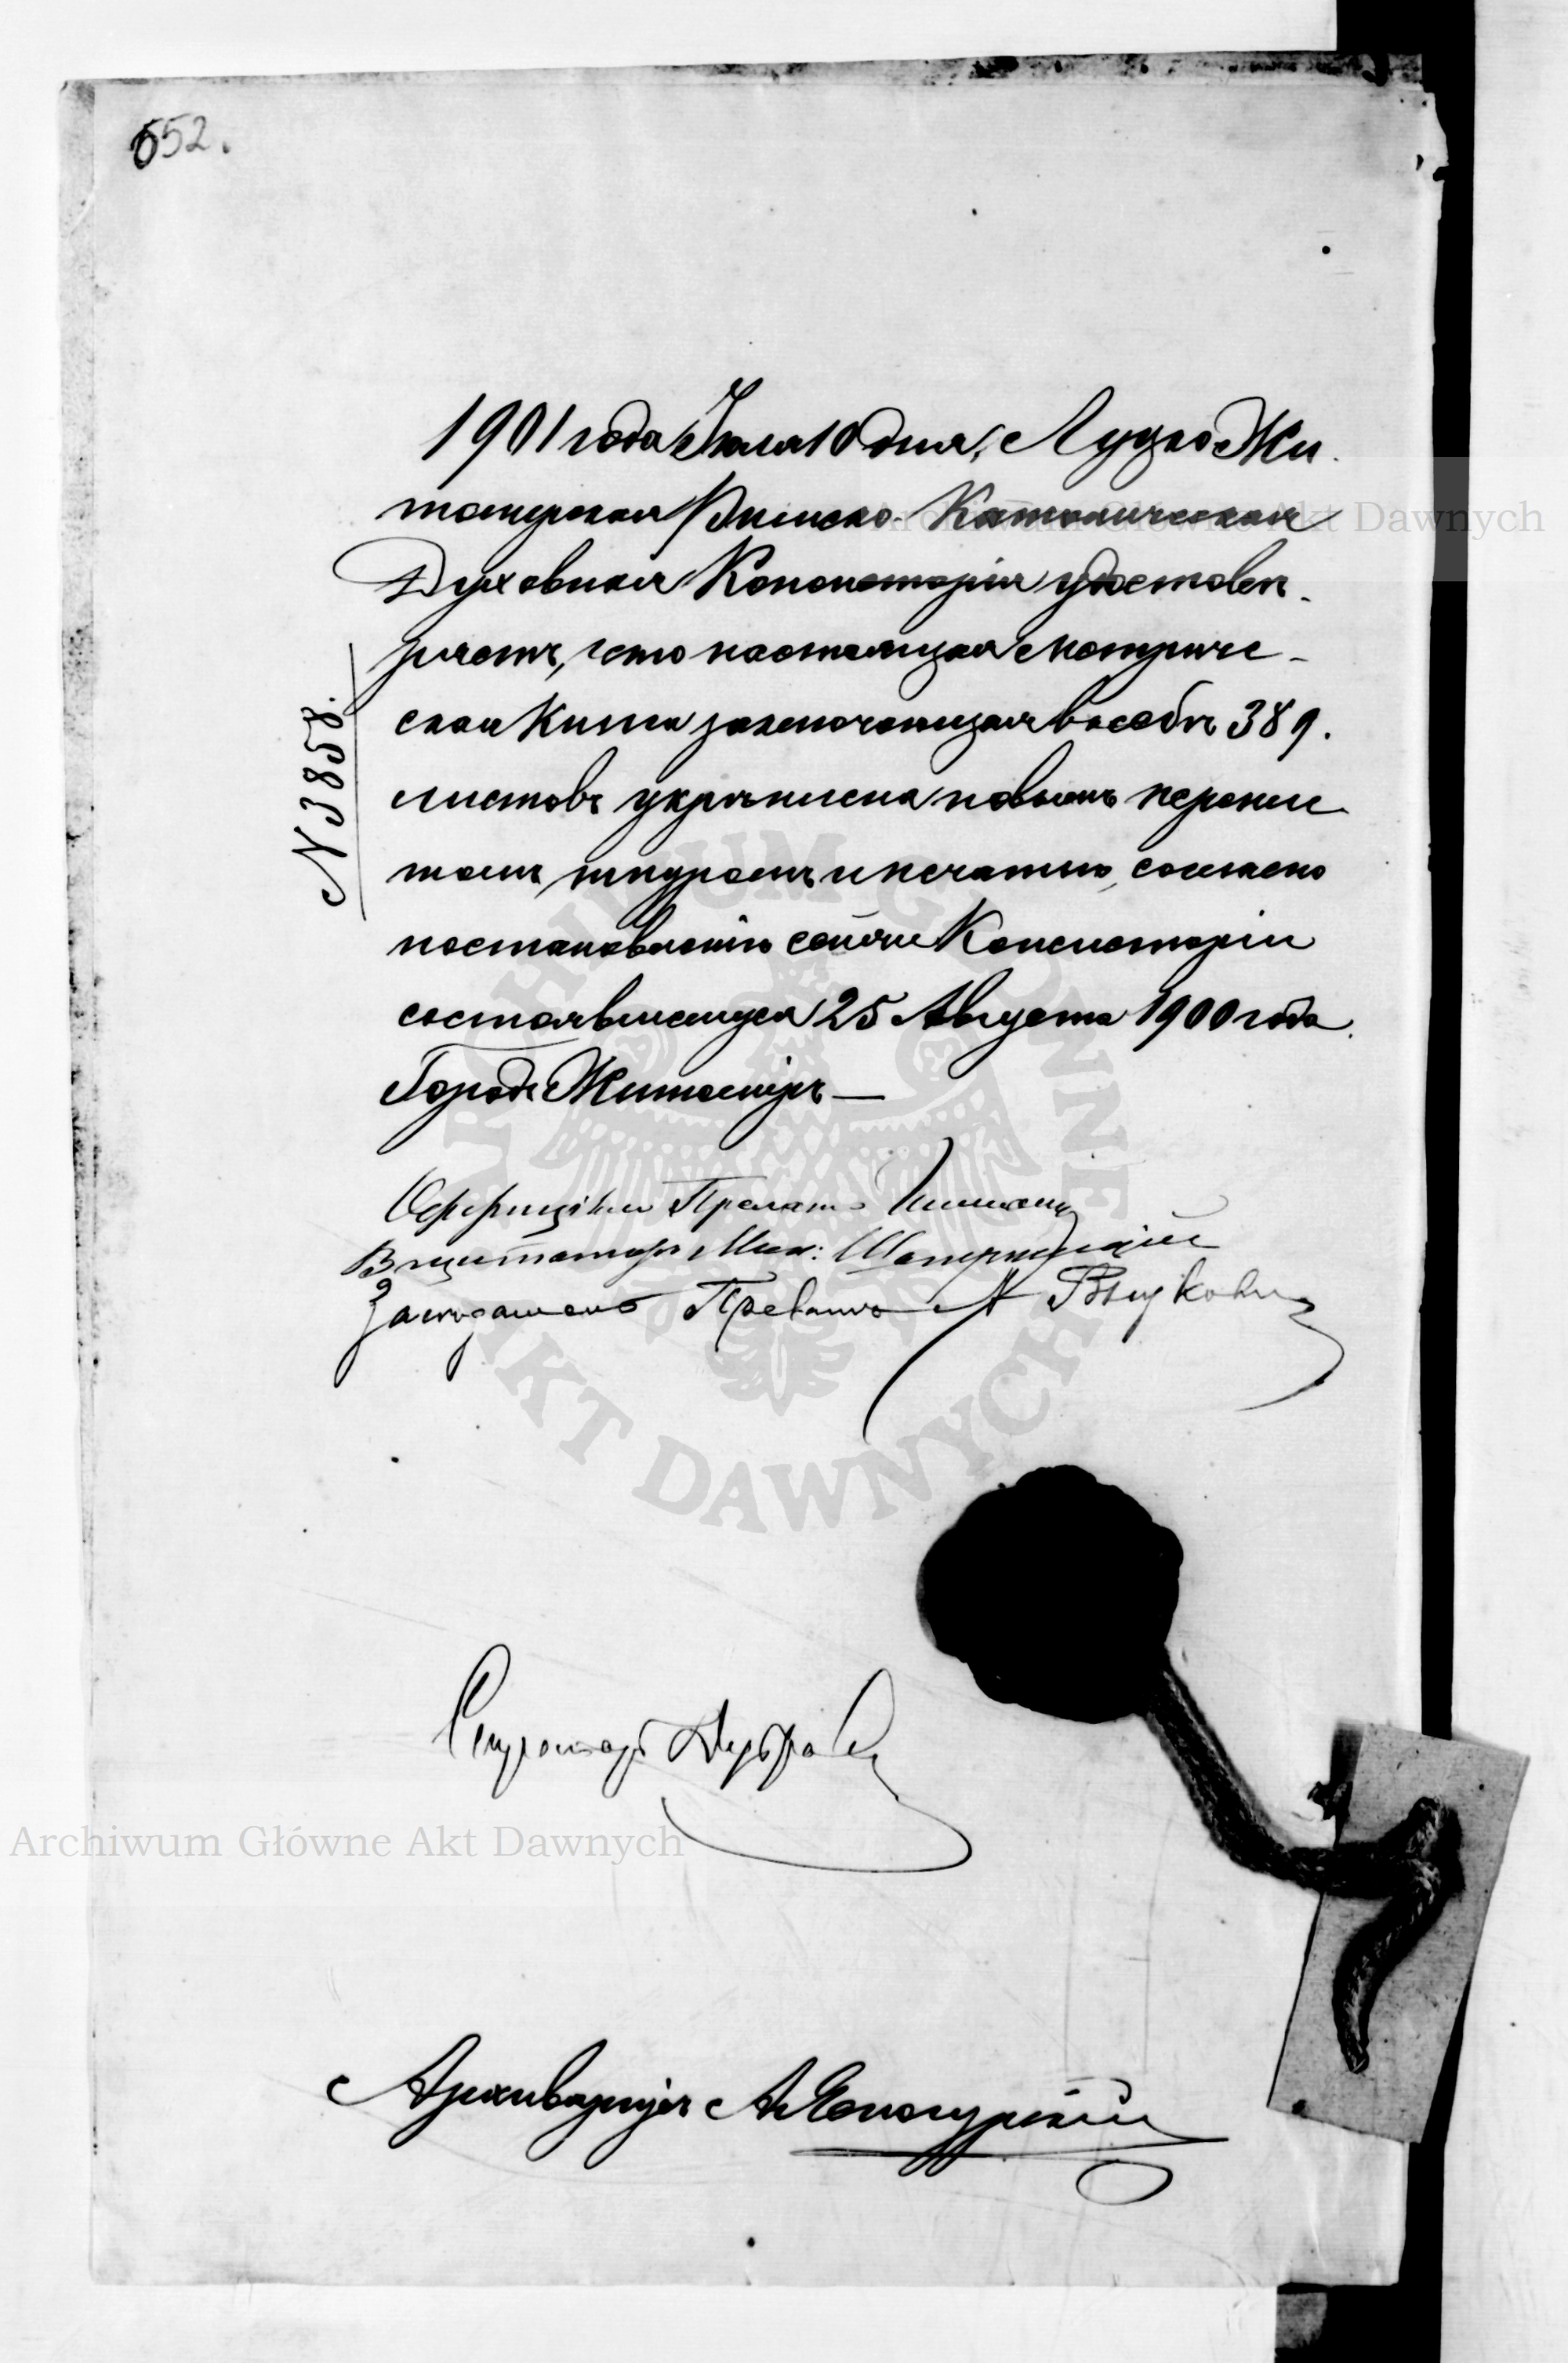 652.
1901 года Іюля 10 дня, Луцко-Жи-
томирская Римско-Католическая
Духовная Консисторія удостовѣ-
ряетъ, что настоящая метриче-
ская книга заключающая въ себѣ 389.
листовъ укрѣплена новымъ переплё
томъ шнуромъ и печатью, согласно
постановленію сей же Консисторіи
состоявшемуся 25 Августа 1900 года.
Городъ Житоміръ —
№ 3858.
Оффиціалъ Прелатъ
Визитаторъ Мих:
Засѣдатель Прелатъ А
Секретарь
Архиваріусъ А.
Archiwum Główne Akt Dawnych
Archiwum Główne Akt Dawnych
ARCHIWUM GŁÓWNE
AKT DAWNYCH